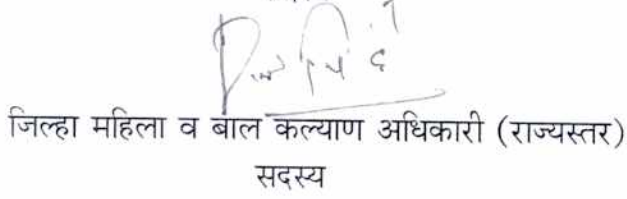 जिल्हा महिला व बाल कल्याण अधिकारी (राज्यस्तर)
सदस्य